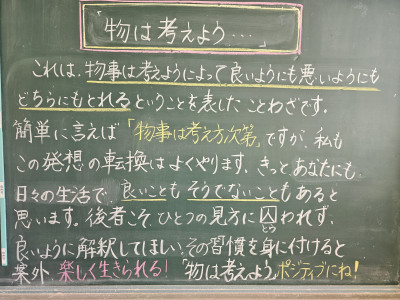 「物は考えよう…」
これは、物事は考えようによって良いようにも悪いようにも
どちらにもとれるということを表したことわざです。
簡単に言えば「物事は考え方次第」ですが、私も
この発想の転換はよくやります。きっとあなたにも
日々の生活で、良いことも そうでないこともあると
思います。後者こそ、ひとつの見方に囚われず、
とら
良いように解釈してほしい。その習慣を身に付けると
案外、楽しく生きられる!「物は考えよう」ポジティブにね!